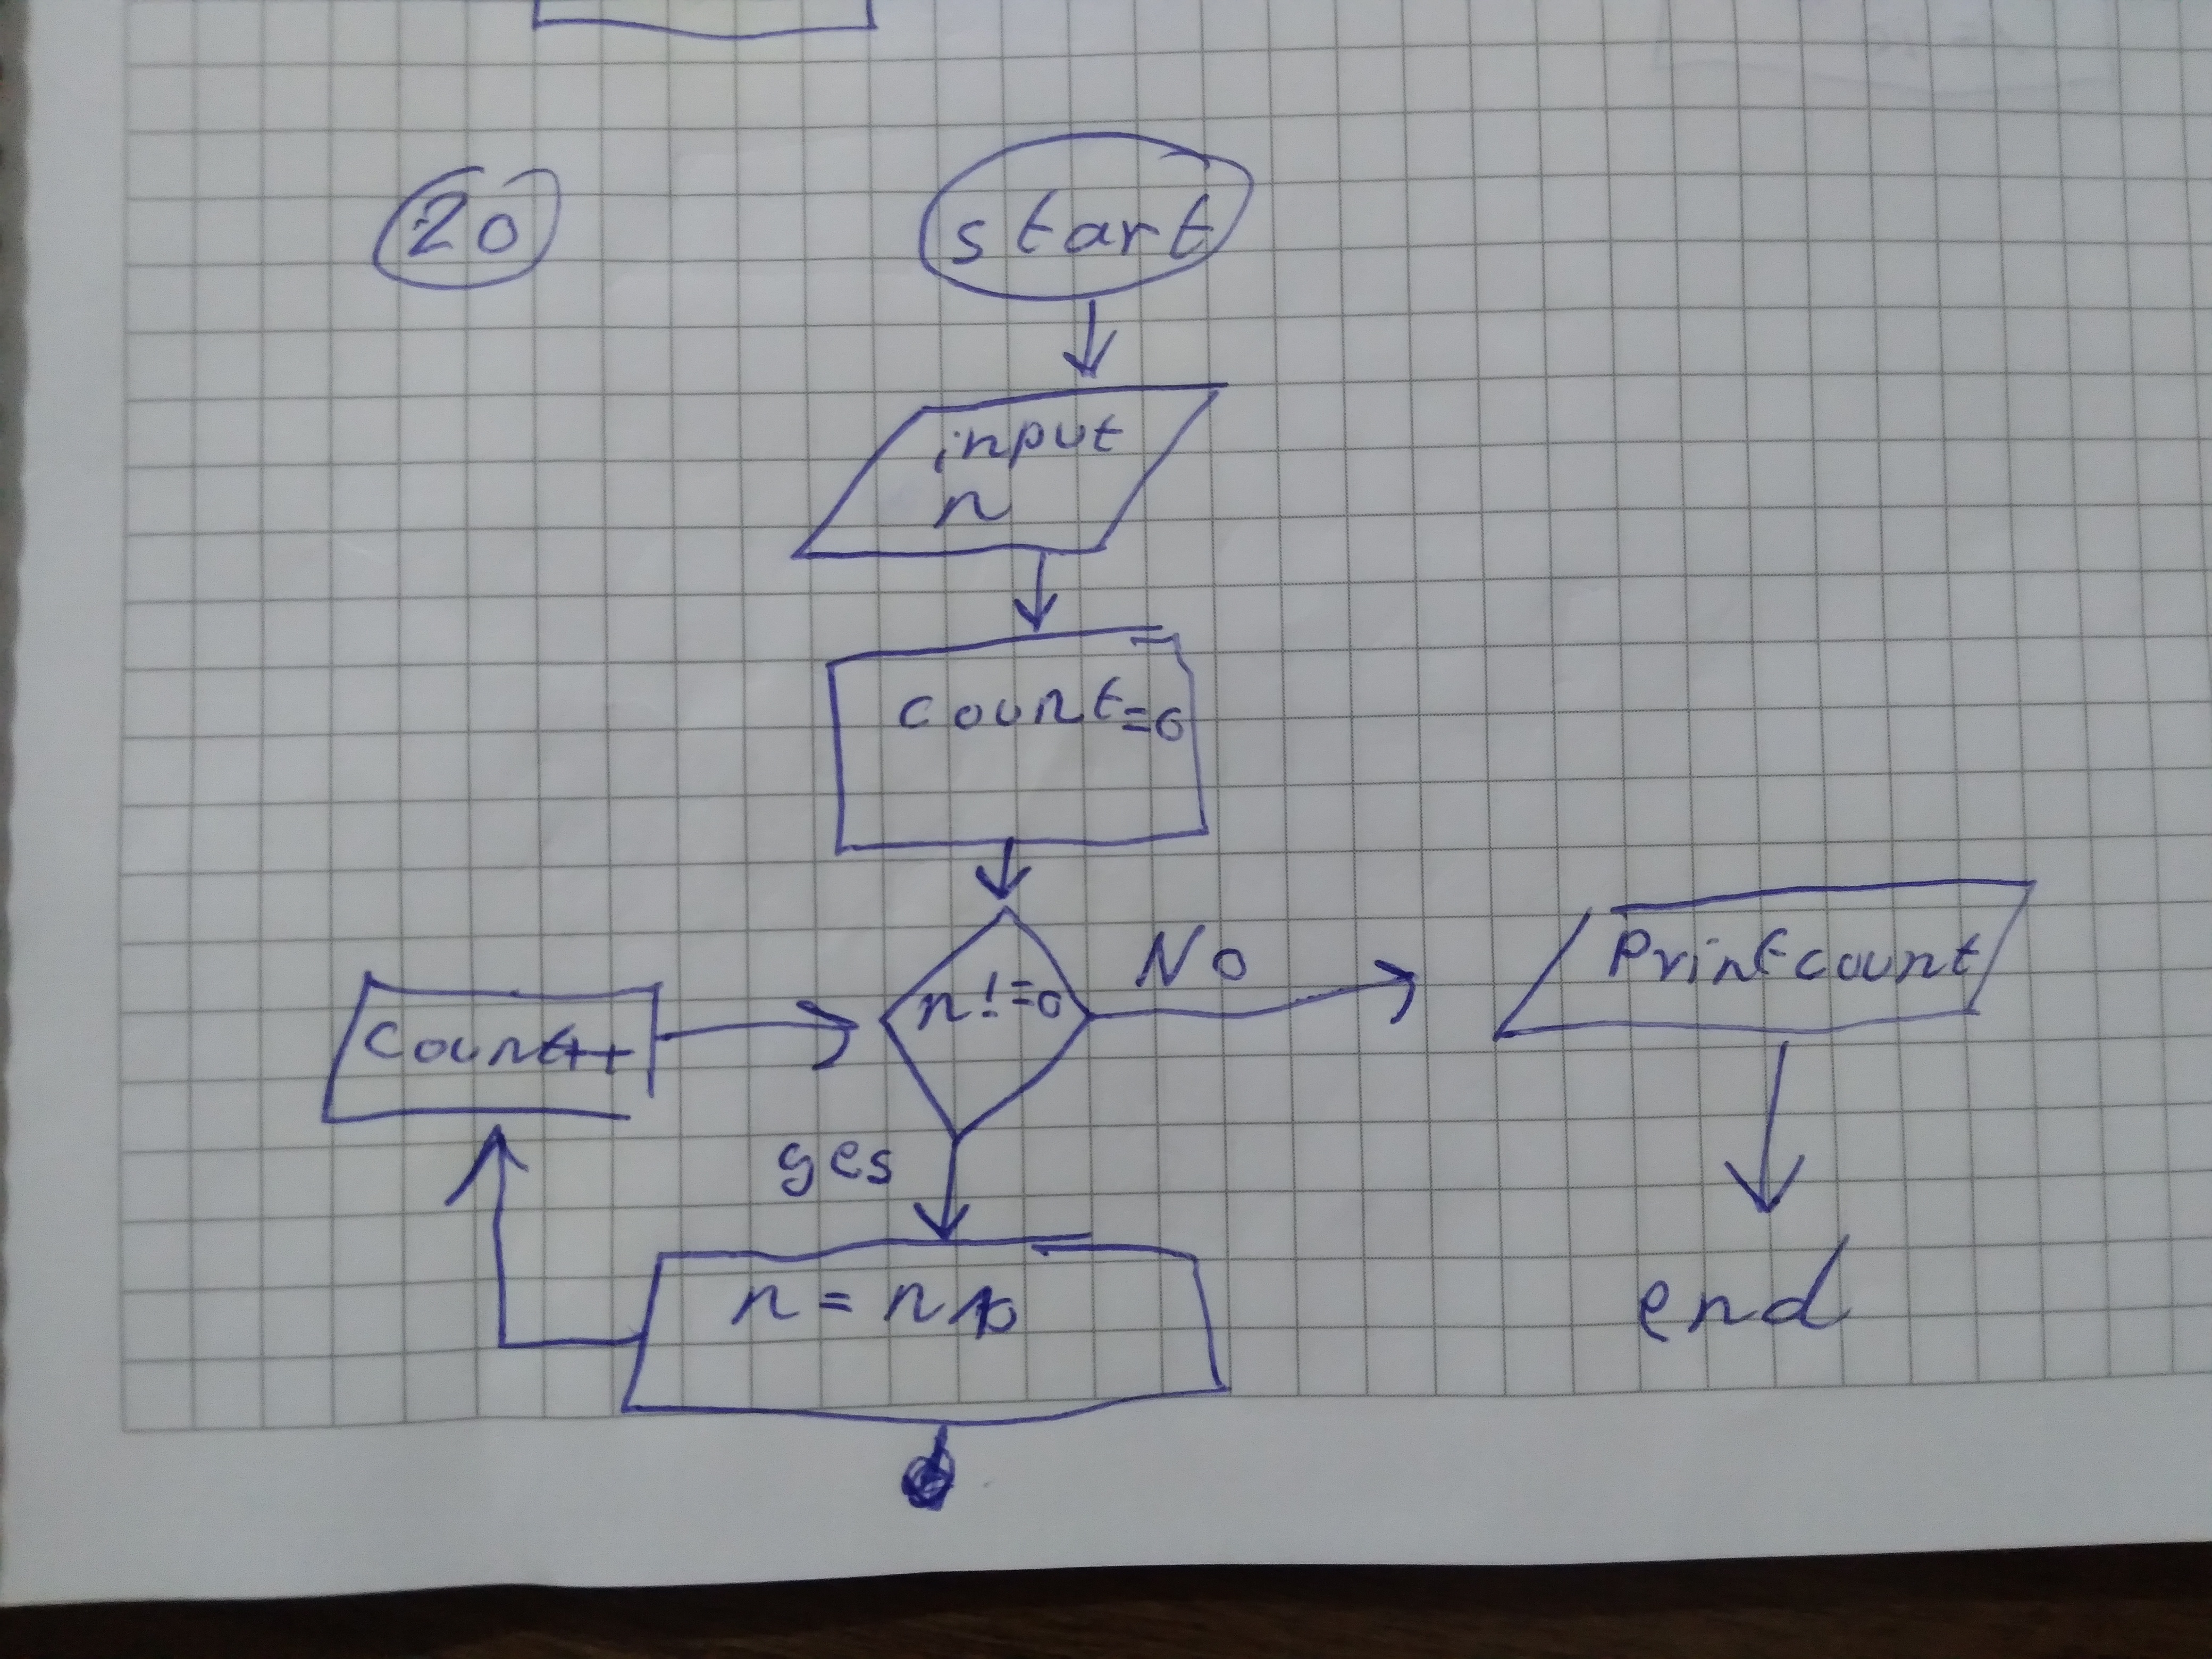 20
start
input
n
count=0
n!=0
No
Print count
count++
yes
n = n/10
end